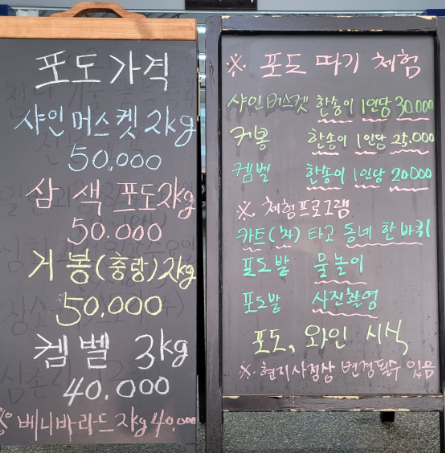 포도가격
샤인머스켓 2kg
50.000
삼색포도2kg
50.000
거봉(충랑)2kg
50.000
켐벨 3kg
40.000
베니바라드 2kg 40.000
※ 포도 따기 체험
샤인머스켓 한송이 1인당 30.000
거봉 한송이 1인당 25.000
켐벨 한송이 1인당 20.000
※ 체험프로그램
카트(차) 타고 동네 한바퀴
포도밭 물놀이
포도밭 사진촬영
포도, 와인 시식
※ 현지사정상 변경될수 있음